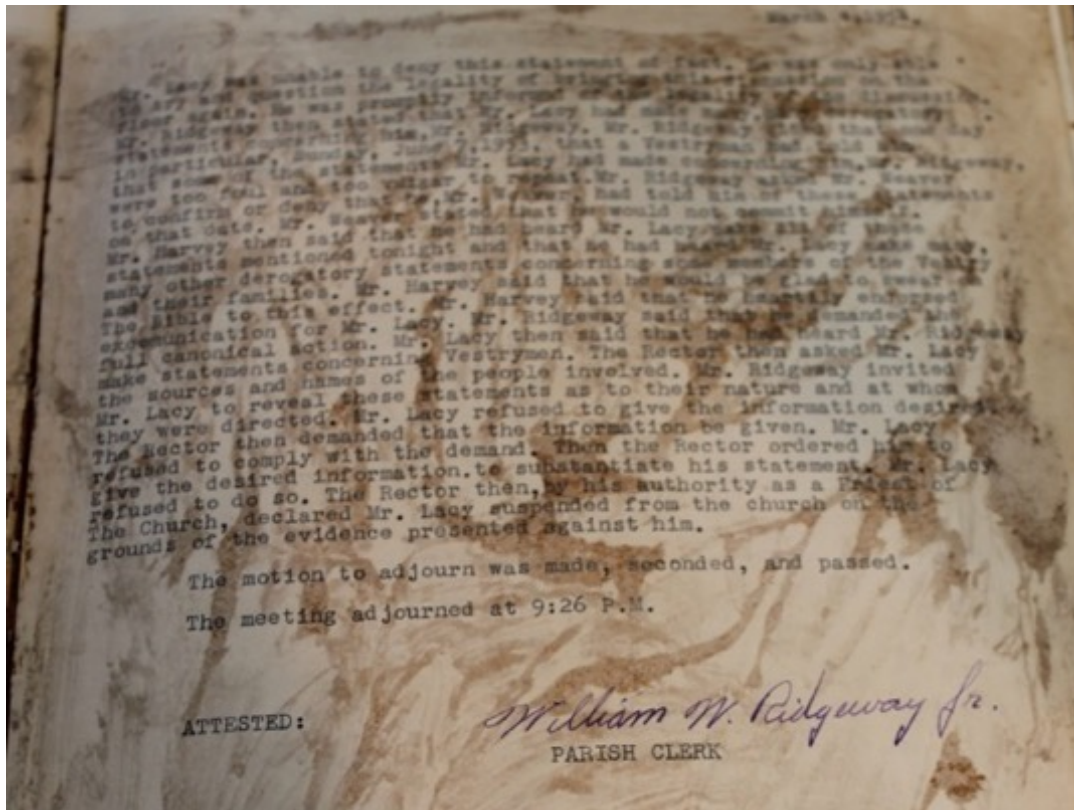 March 4, 195
Mr. Lacy was unable to deny this statement of fact. He was only able
to try and question the legality of bringing this discussion on the
floor again. He was promptly
Mr. Ridgeway then stated that Mr. Lacy had made
statements concerning him. Mr. Ridgeway said that on one day
in particular, Sunday, June 7, 1953, that a Vestryman had told him
that some of the statements Mr. Lacy had made concerning Mr. Ridgeway,
were too foul and too vulgar to repeat. Mr. Ridgeway asked Mr. Weaver
to confirm or deny that he, Mr. Weaver, had told him of these statements
on that date. Mr. Weaver stated that he would not commit himself.
Mr. Harvey then said that he had heard Mr. Lacy make all of these
statements mentioned tonight and that he had heard Mr. Lacy make many,
many other derogatory statements concerning some members of the Vestry
and their families. Mr. Harvey said that he would be glad to swear on
The Bible to this effect. Mr. Harvey said that he heartily endorsed
excommunication for Mr. Lacy. Mr. Ridgeway said that he demanded the
full canonical action. Mr. Lacy then said that he had heard Mr. Ridgeway
make statements concerning Vestrymen. The Rector then asked Mr. Lacy
the sources and names of the people involved. Mr. Ridgeway invited
Mr. Lacy to reveal these statements as to their nature and at whom
they were directed. Mr. Lacy refused to give the information desired.
The Rector then demanded that the information be given. Mr. Lacy
refused to comply with the demand. Then the Rector ordered him to
give the desired information.to substantiate his statement. Mr. Lacy
refused to do so. The Rector then,by his authority as a Priest of
The Church, declared Mr. Lacy suspended from the church on the
grounds of the evidence presented against him.
The motion to adjourn was made, seconded, and passed.
The meeting adjourned at 9:26 P.M.
ATTESTED: William W. Ridgeway Jr.
PARISH CLERK